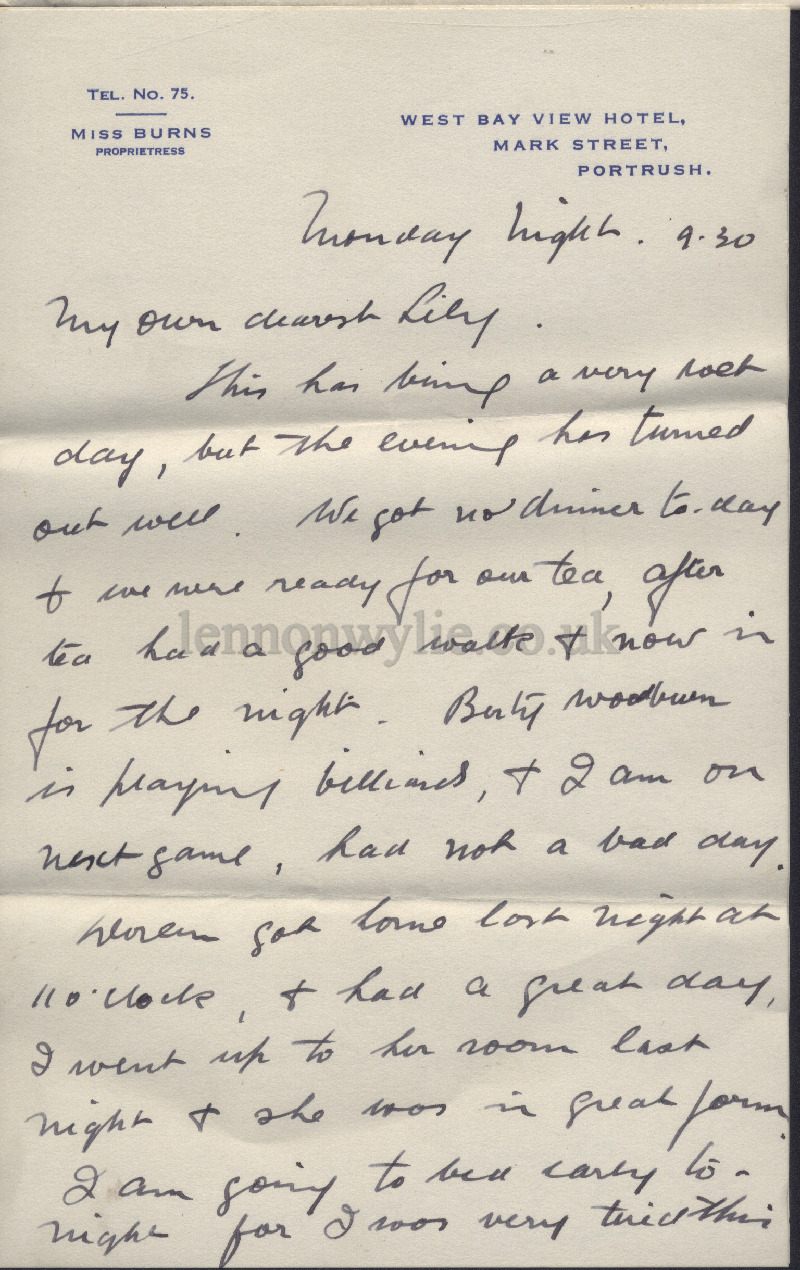 TEL. NO. 75.
MISS BURNS
PROPRIETRESS
WEST BAY VIEW HOTEL,
MARK STREET,
PORTRUSH.
Monday Night. 9.30
My own dearest Lily.
This has being a very wet
day, but the evening has turned
out well. We got no dinner to-day
& we were ready for our tea, after
tea had a good walk & now in
for the night. Berty Woodburn
is playing billiards, & I am on
next game, had not a bad day.
Doreen got home last night at
11 o'clock, & had a great day,
I went up to her room last
night & she was in great form.
I am going to bed early to-
night for I was very tired this
lennonwylie.co.uk